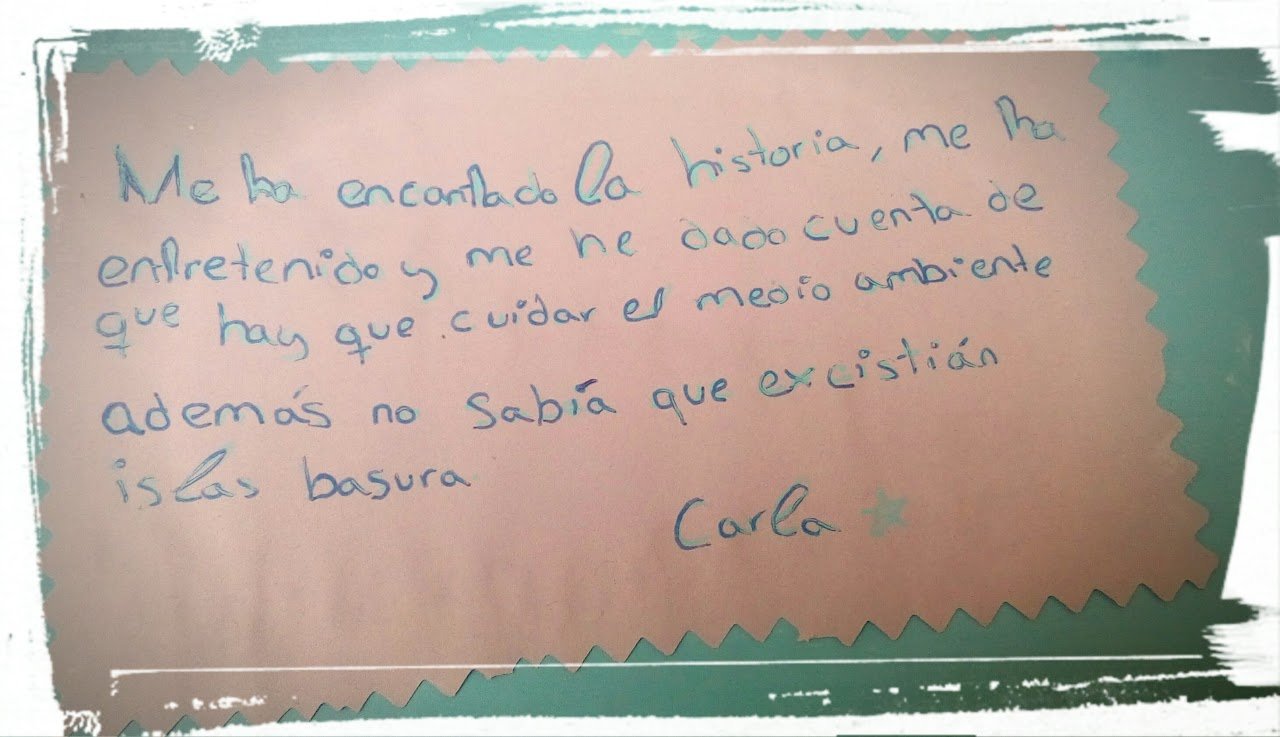 Me ha encantado la historia, me ha
entretenido y me he dado cuenta de
que hay que cuidar el medio ambiente
además no sabía que excistián
islas basura
Carla